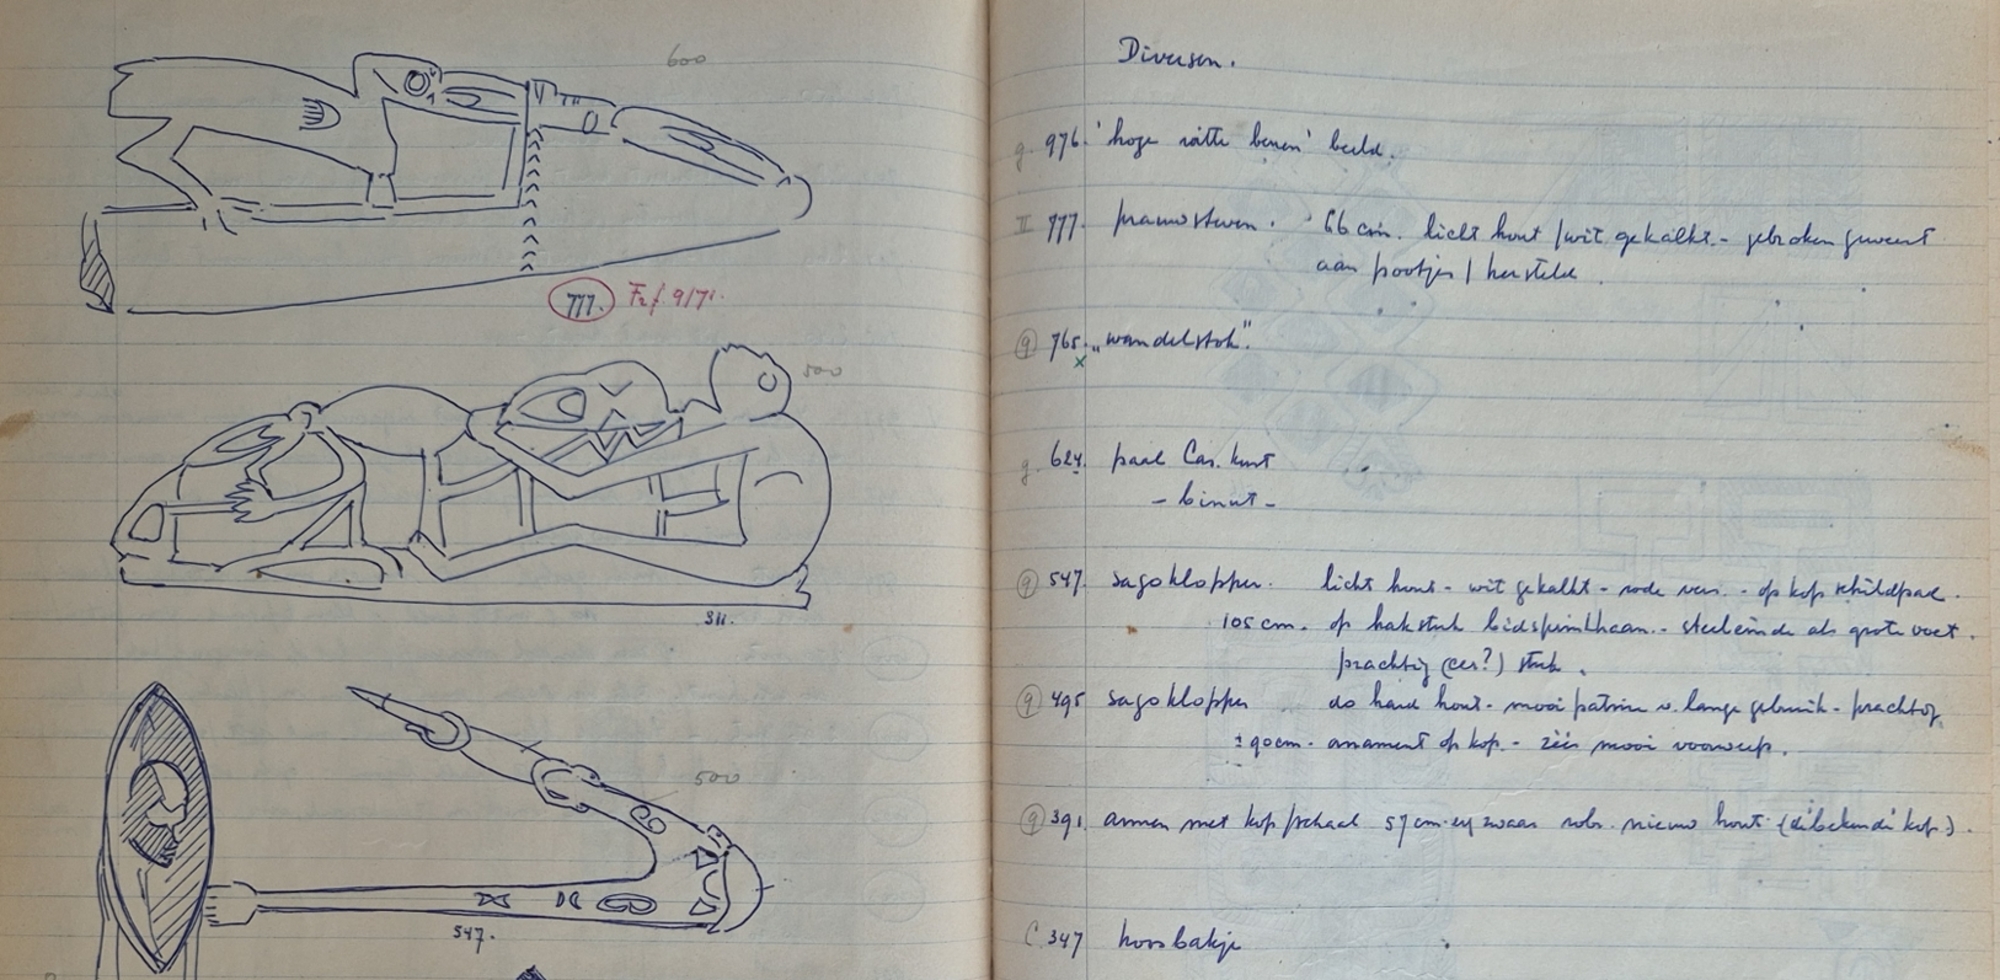 600
777. Fr f. 9/71.
500
311.
500
547.
Diversen.
g. 976. 'hoge witte benen' beeld.
II 777. prauwsteven. 66 cm. licht hout / wit gekalkt. - gebroken geweest
aan pootjes / hersteld.
g 765. „wandelstok".
x
g. 624. paal Cas. kust
- binut -
g 547. sagoklopper. licht hout - wit gekalkt - rode vers. - op kop schildpad.
105 cm. op hakstuk bidsprinkhaan. - steeleinde als grote voet.
prachtig (cer?) stuk.
g 495 sagoklopper do hard hout - mooi patine v. lange gebruik - prachtig
± 90 cm. ornament op kop. - zéér mooi voorwerp.
g 391. armen met kop/schaal 57 cm. erg zwaar robr. nieuw hout (dibekendi kop.).
C. 347 hoosbakje